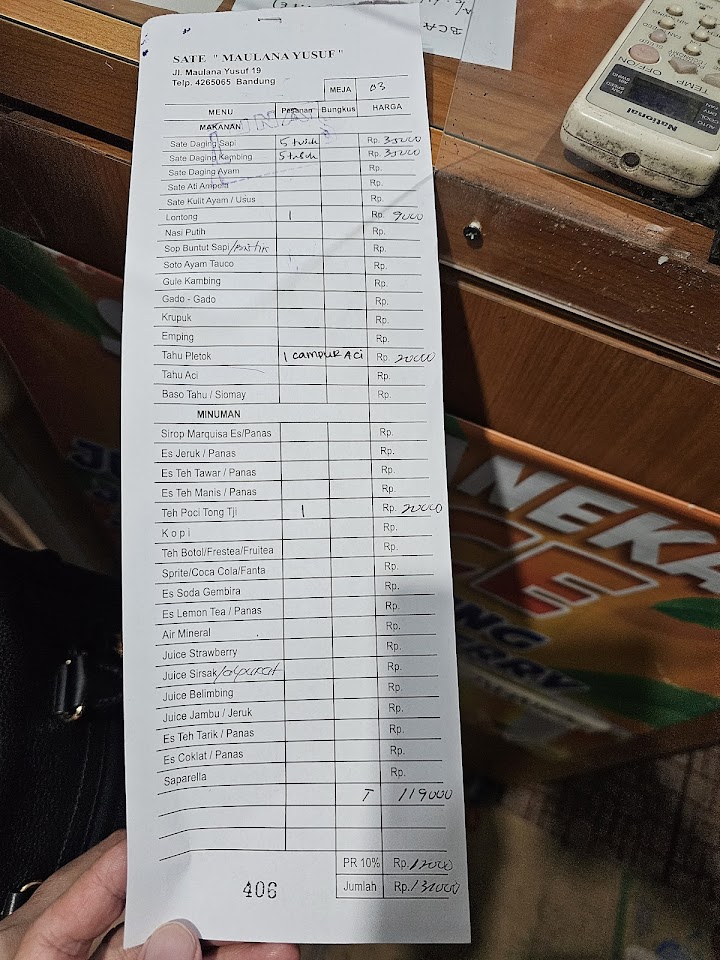 BCA
SATE " MAULANA YUSUF "
Jl. Maulana Yusuf 19
Telp. 4265065 Bandung
MEJA 03
MENU Pesanan Bungkus HARGA
MAKANAN
Sate Daging Sapi 5 tusuk Rp. 35000
Sate Daging Kambing 5 tusuk Rp. 35000
Sate Daging Ayam Rp.
Sate Ati Ampela Rp.
Sate Kulit Ayam / Usus Rp.
Lontong 1 Rp. 9000
Nasi Putih Rp.
Sop Buntut Sapi Rp.
Soto Ayam Tauco Rp.
Gule Kambing Rp.
Gado - Gado Rp.
Krupuk Rp.
Emping Rp.
Tahu Pletok 1 campur Aci Rp. 20000
Tahu Aci Rp.
Baso Tahu / Siomay Rp.
MINUMAN
Sirop Marquisa Es/Panas Rp.
Es Jeruk / Panas Rp.
Es Teh Tawar / Panas Rp.
Es Teh Manis / Panas Rp.
Teh Poci Tong Tji 1 Rp. 20000
K o p i Rp.
Teh Botol/Frestea/Fruitea Rp.
Sprite/Coca Cola/Fanta Rp.
Es Soda Gembira Rp.
Es Lemon Tea / Panas Rp.
Air Mineral Rp.
Juice Strawberry Rp.
Juice Sirsak/alpukat Rp.
Juice Belimbing Rp.
Juice Jambu / Jeruk Rp.
Es Teh Tarik / Panas Rp.
Es Coklat / Panas Rp.
Saparella Rp.
T 119000
PR 10% Rp. 12000
406 Jumlah Rp. 131000
FAN
OFF/ON
TEMP
National
ANEKA
ICE